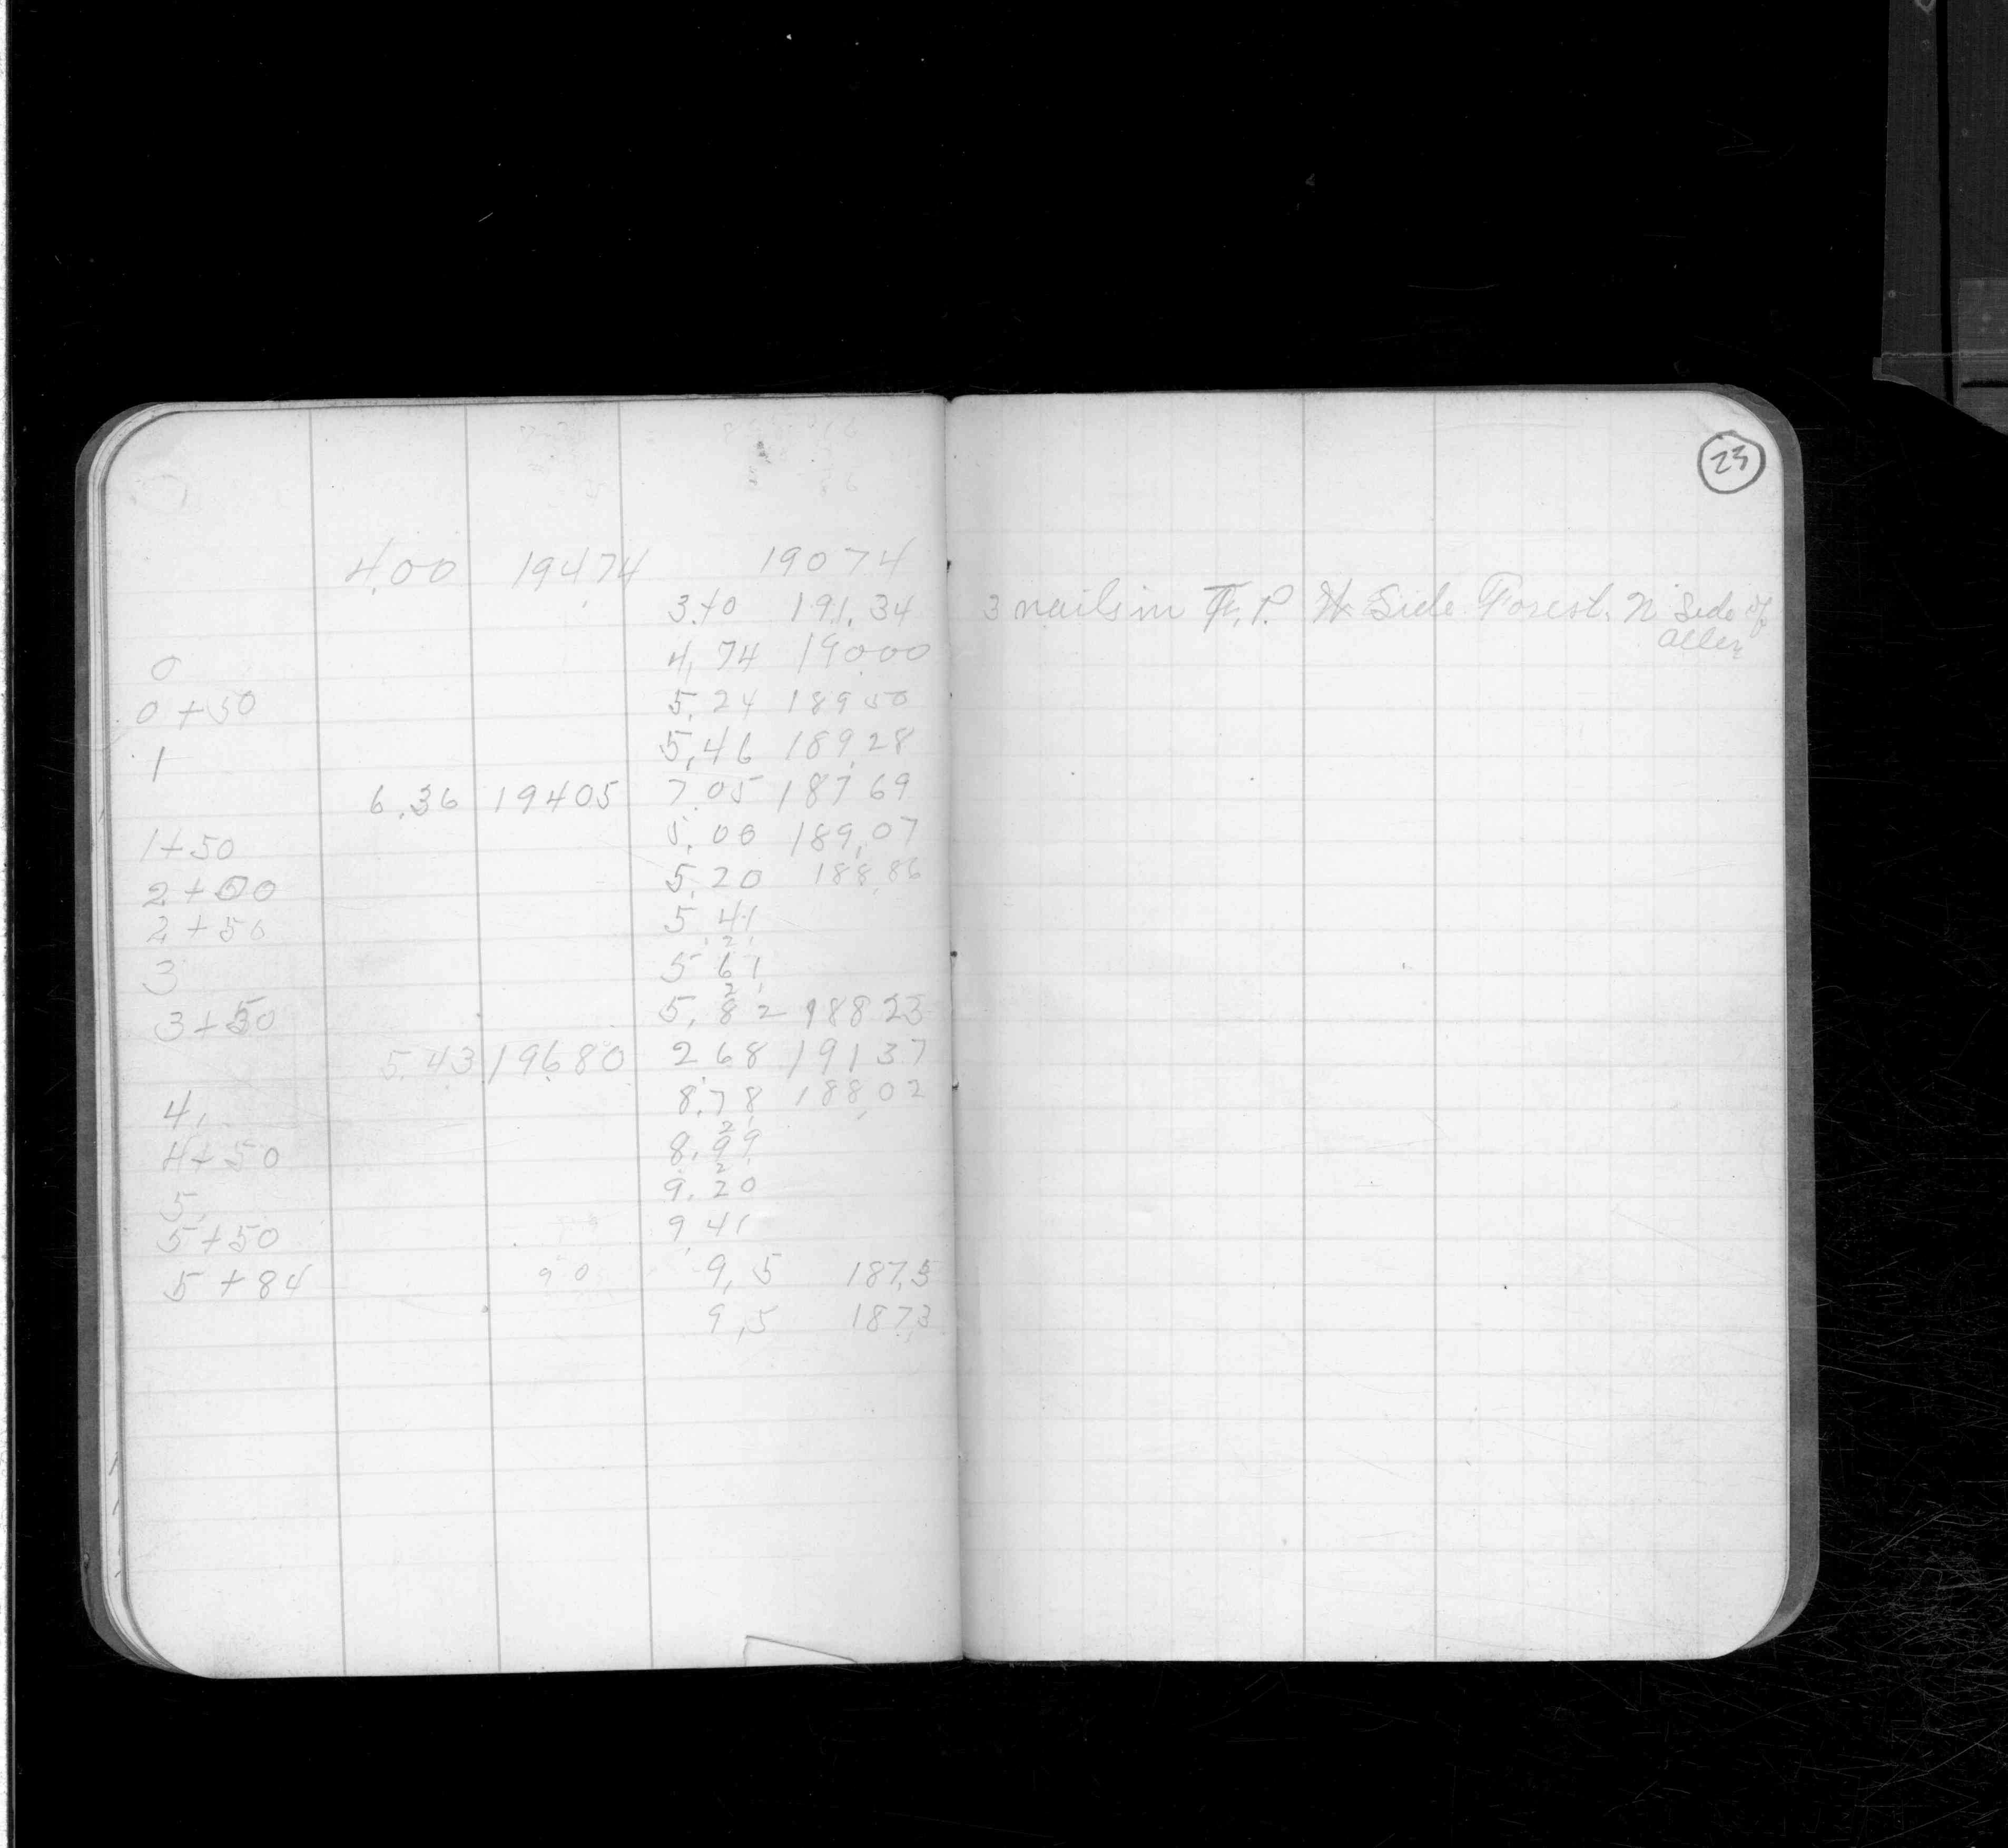 23
4.00 19474 19074
3.40 191.34 3 nails in T.P. W Side Forest. N Side of
Allen
0 4.74 19000
0+50 5.24 18950
1 5.46 189.28
6.36 19405 7.05 18769
1+50 5.00 189.07
2+00 5.20 188.86
2+50 5.41
21
3 5 61
21
3+50 5.82 188 23
5.43 19680 268 19137
4. 8.78 188.02
21
4+50 8.99
2
5. 9.20
5+50 9 41
5+84 90 9.5 187.3
9.5 187.3